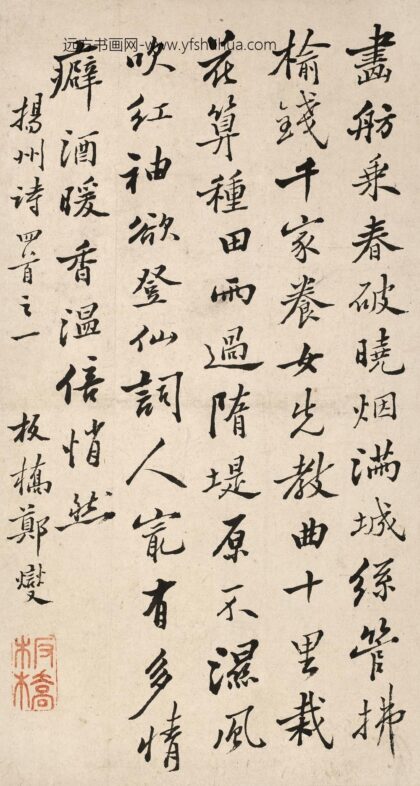 远方书画网-www.yfshuhua.com
畫舫乘春破曉烟滿城絲管拂
榆錢千家養女先教曲十里栽
花算種田雨過隋堤原不濕風
吹紅袖欲登仙詞人㝡有多情
癖酒暖香溫倍悄然
揚州詩四首之一 板橋鄭燮
板橋